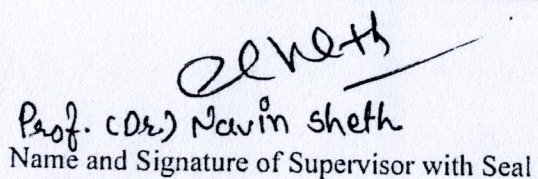 Prof. (Dr.) Navin Sheth
Name and Signature of Supervisor with Seal